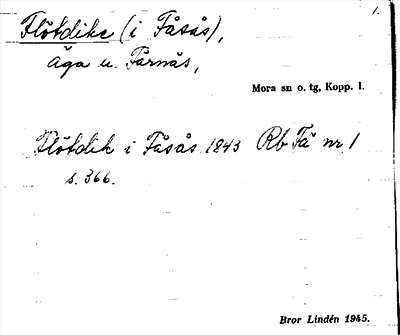 1.
Flötdike (i Fåsås),
äga u. Färnäs,
Mora sn o. tg, Kopp. l.
Flötdik i Fåsås 1843 Rb Fä nr 1
s. 366.
Bror Lindén 1945.